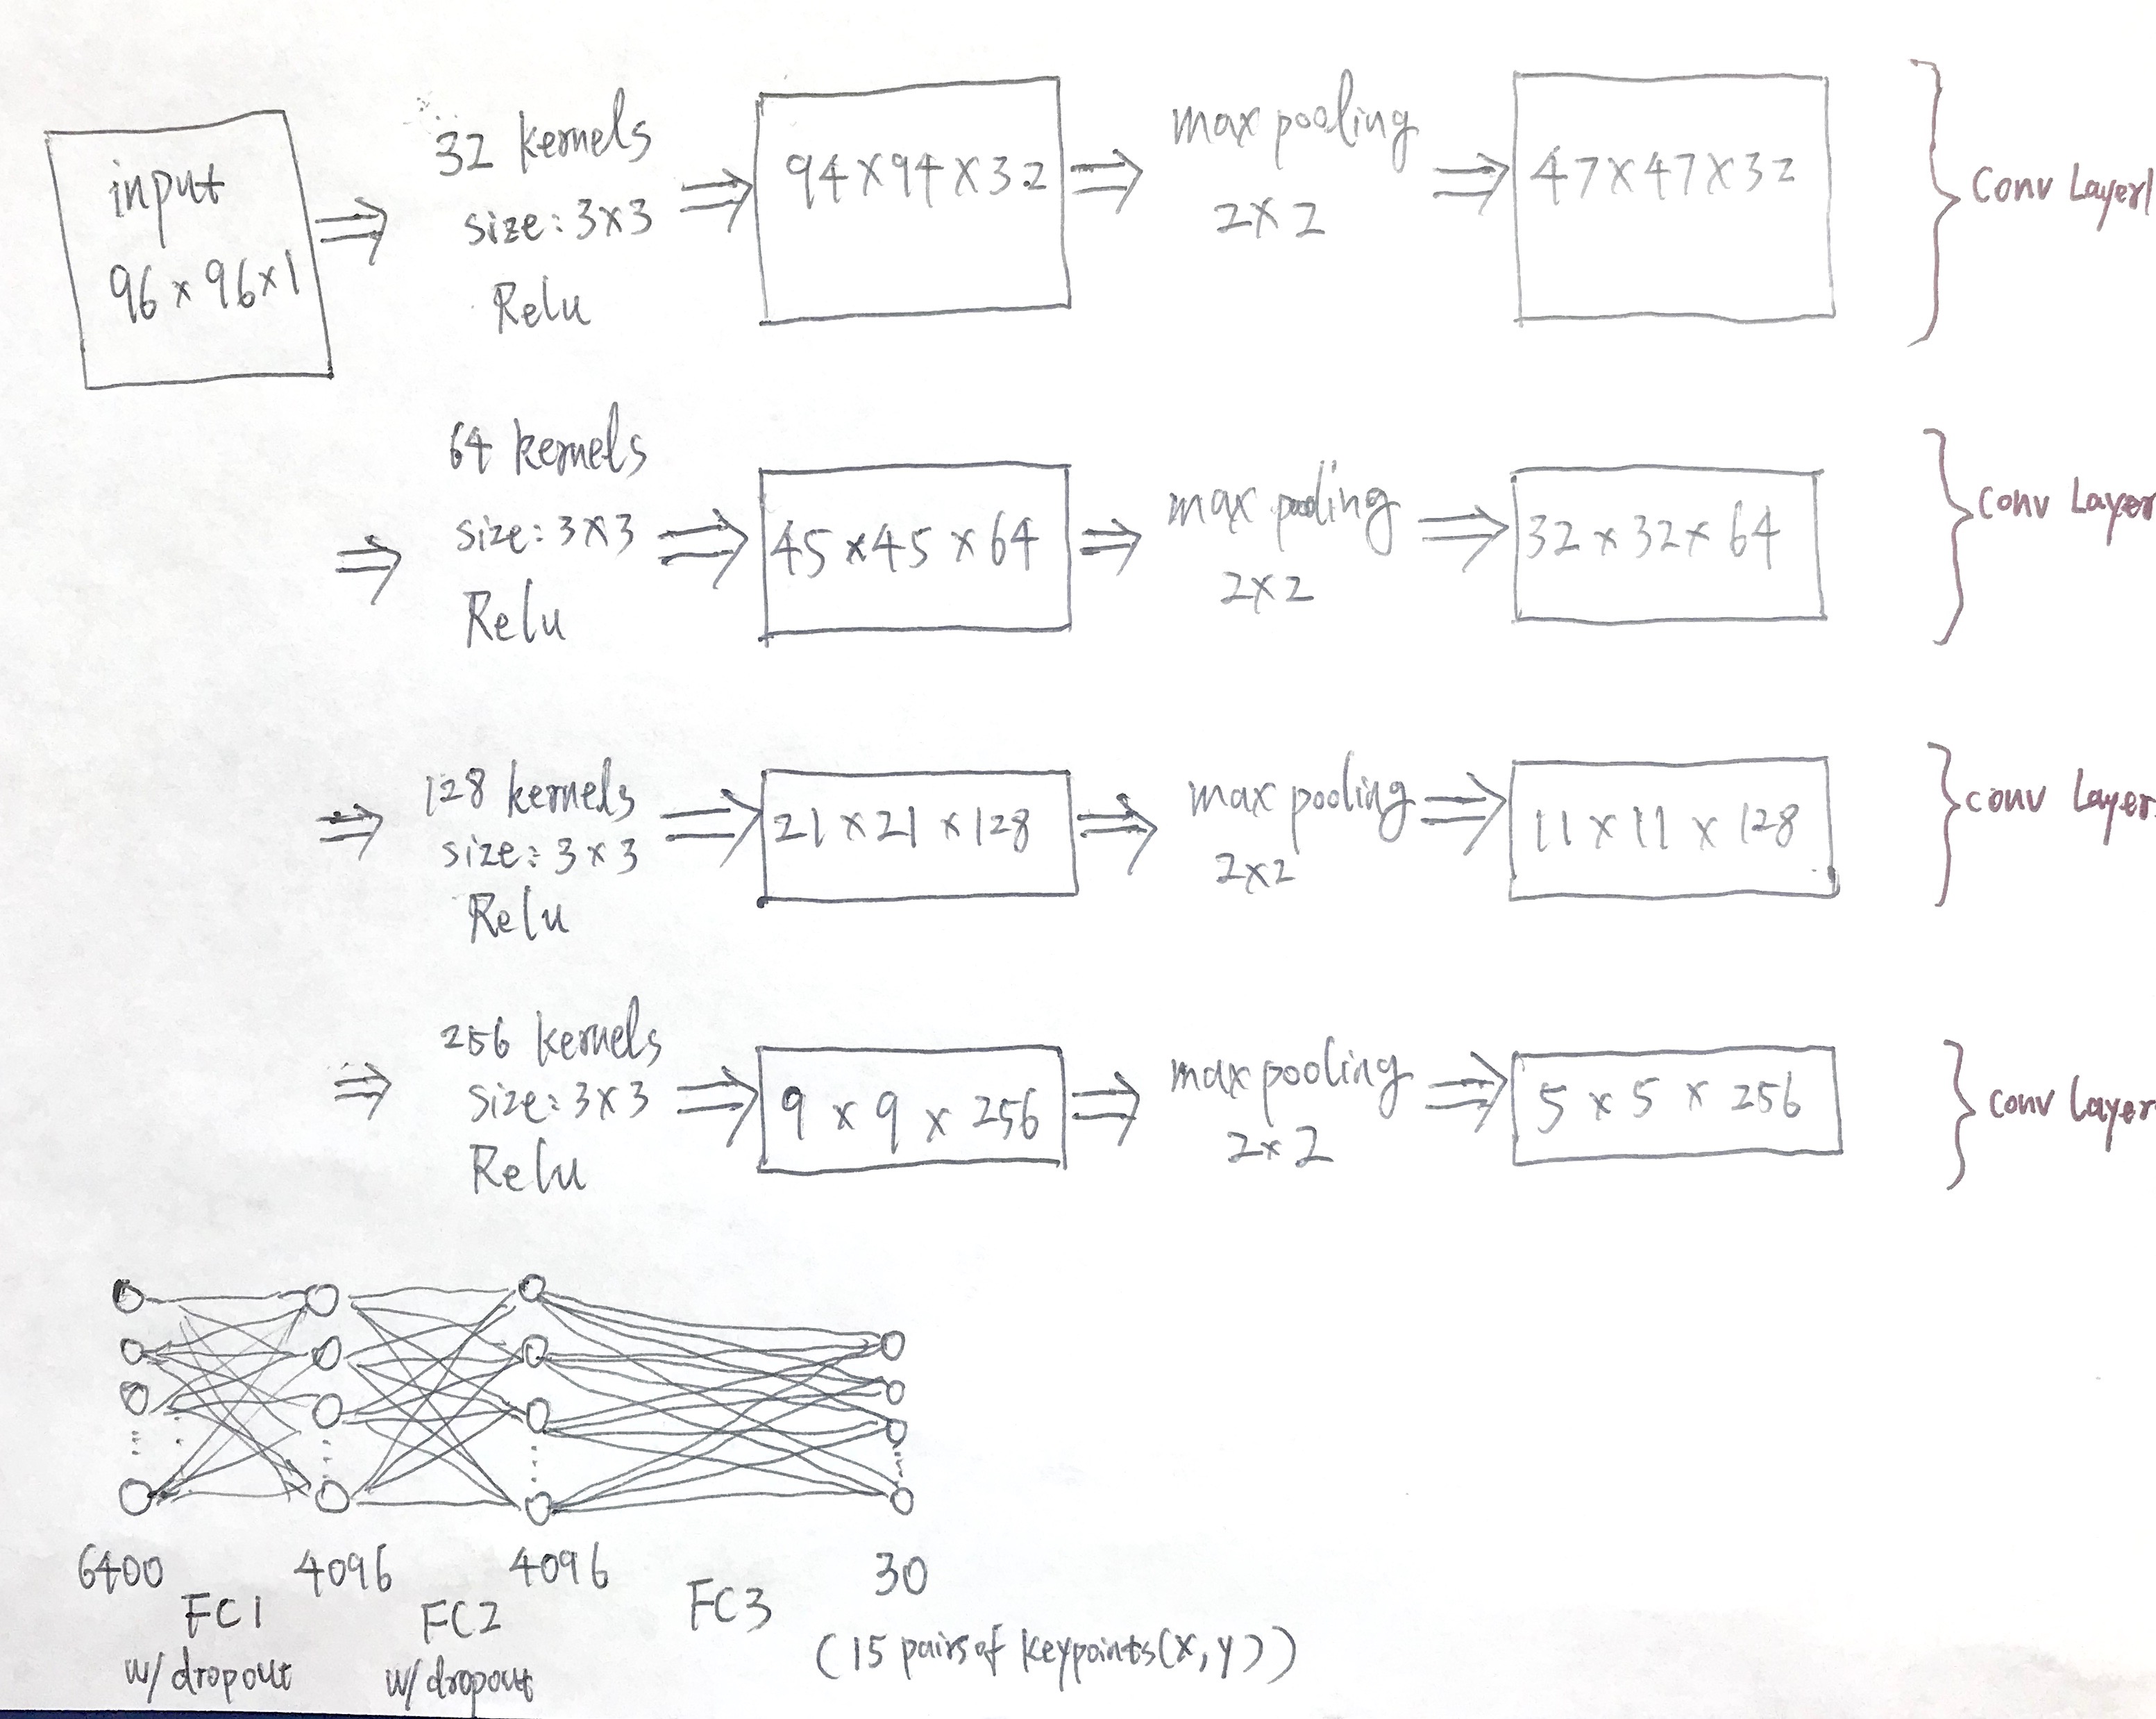 input
96 x 96 x 1
32 kernels
size: 3x3
Relu
94 x 94 x 32
max pooling
2x2
47 x 47 x 32
Conv Layer1
64 kernels
size: 3x3
Relu
45 x 45 x 64
max pooling
2x2
32 x 32 x 64
Conv Layer
128 kernels
size: 3x3
Relu
21 x 21 x 128
max pooling
2x2
11 x 11 x 128
conv Layer
256 kernels
size: 3x3
Relu
9 x 9 x 256
max pooling
2x2
5 x 5 x 256
conv Layer
6400
FC1
w/ dropout
4096
FC2
w/ dropout
4096
FC3
30
(15 pairs of keypoints(x,y))